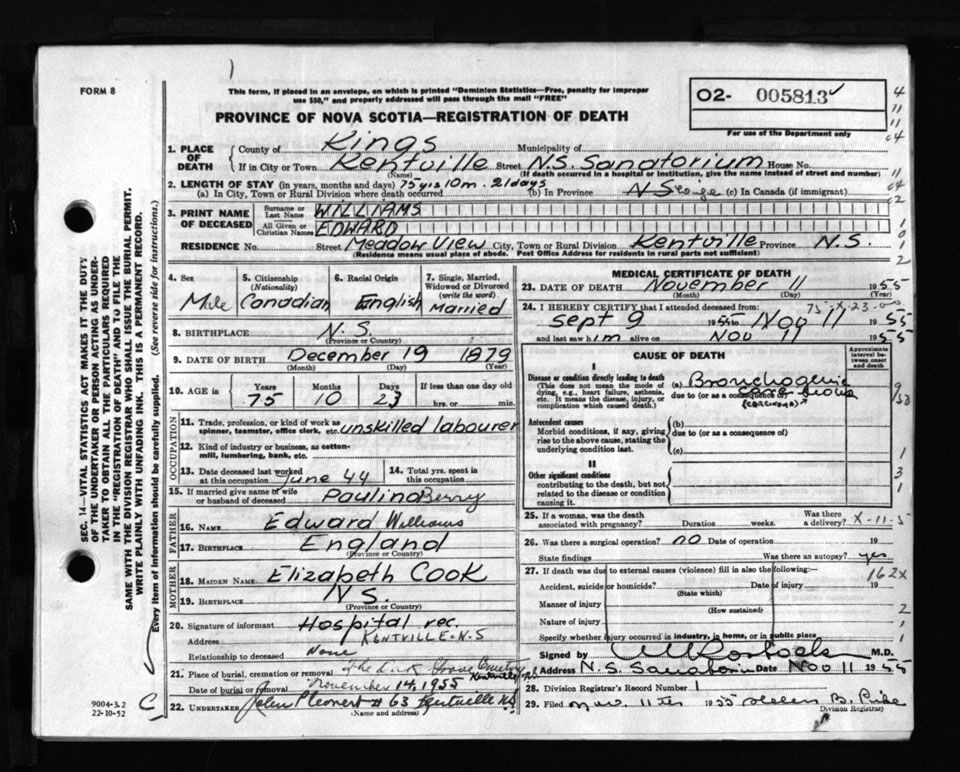 FORM 8
This form, if placed in an envelope, on which is printed "Dominion Statistics—Free, penalty for improper
use $50," and properly addressed will pass through the mail "FREE"
PROVINCE OF NOVA SCOTIA—REGISTRATION OF DEATH
O2- 005813
For use of the Department only
1. PLACE OF DEATH
County of Kings Municipality of
If in City or Town Kentville Street N.S. Sanatorium House No.
(Name) (If death occurred in a hospital or institution, give the name instead of street and number)
2. LENGTH OF STAY (in years, months and days) 75 yrs 10 m. 21 days
(a) In City, Town or Rural Division where death occurred (b) In Province N S (c) In Canada (if immigrant)
3. PRINT NAME OF DECEASED
Surname or Last Name WILLIAMS
All Given or Christian Names EDWARD
RESIDENCE No. Street Meadow View City, Town or Rural Division Kentville Province N.S.
(Residence means usual place of abode. Post Office Address for residents in rural parts not sufficient)
4. Sex Male
5. Citizenship (Nationality) Canadian
6. Racial Origin English
7. Single, Married, Widowed or Divorced (write the word) Married
8. BIRTHPLACE N.S.
(Province or Country)
9. DATE OF BIRTH December 19 1879
(Month) (Day) (Year)
10. AGE in Years 75 Months 10 Days 23 If less than one day old
hrs. or min.
OCCUPATION
11. Trade, profession, or kind of work as
spinner, teamster, office clerk, etc. unskilled labourer
12. Kind of industry or business, as cotton-
mill, lumbering, bank, etc.
13. Date deceased last worked at this occupation June 44
14. Total yrs. spent in this occupation
15. If married give name of wife or husband of deceased Paulina Berry
FATHER
16. Name Edward Williams
17. Birthplace England
(Province or Country)
MOTHER
18. Maiden Name Elizabeth Cook
19. Birthplace N.S.
(Province or Country)
20. Signature of informant Hospital rec.
Address Kentville N.S
Relationship to deceased None
21. Place of burial, cremation or removal Kentville N.S.
Date of burial or removal November 14, 1955
22. Undertaker # 63 Kentville NS
(Name and address)
MEDICAL CERTIFICATE OF DEATH
23. DATE OF DEATH November 11 1955
(Month) (Day) (Year)
24. I HEREBY CERTIFY that I attended deceased from:
Sept 9 1955 to Nov 11 1955
and last saw him alive on Nov 11 1955
CAUSE OF DEATH
Approximate interval between onset and death
I
Disease or condition directly leading to death
(This does not mean the mode of
dying, e.g., heart failure, asthenia,
etc. It means the disease, injury, or
complication which caused death.)
(a) Bronchogenic
due to (or as a consequence of)
(carcinoma)
Antecedent causes
Morbid conditions, if any, giving
rise to the above cause, stating the
underlying condition last.
(b)
due to (or as a consequence of)
(c)
II
Other significant conditions
contributing to the death, but not
related to the disease or condition
causing it.
25. If a woman, was the death associated with pregnancy? Duration weeks. Was there a delivery? X-11-5
26. Was there a surgical operation? no Date of operation 19
State findings Was there an autopsy? yes
27. If death was due to external causes (violence) fill in also the following: 162X
Accident, suicide or homicide? Date of injury 19
(State which)
Manner of injury
(How sustained)
Nature of injury
Specify whether injury occurred in industry, in home, or in public place
Signed by M.D.
Address N.S. Sanatorium Date Nov 11 1955
28. Division Registrar's Record Number 1
29. Filed Nov. 11th 1955 Helen B. Pike
(Division Registrar)
9004-3.2
22-10-52
C
SEC. 14—VITAL STATISTICS ACT MAKES IT THE DUTY
OF THE UNDERTAKER OR PERSON ACTING AS UNDER-
TAKER TO OBTAIN ALL THE PARTICULARS REQUIRED
IN THE "REGISTRATION OF DEATH" AND TO FILE THE
SAME WITH THE DIVISION REGISTRAR WHO SHALL ISSUE THE BURIAL PERMIT.
WRITE PLAINLY WITH UNFADING INK. THIS IS A PERMANENT RECORD.
Every item of information should be carefully supplied. (See reverse side for instructions.)